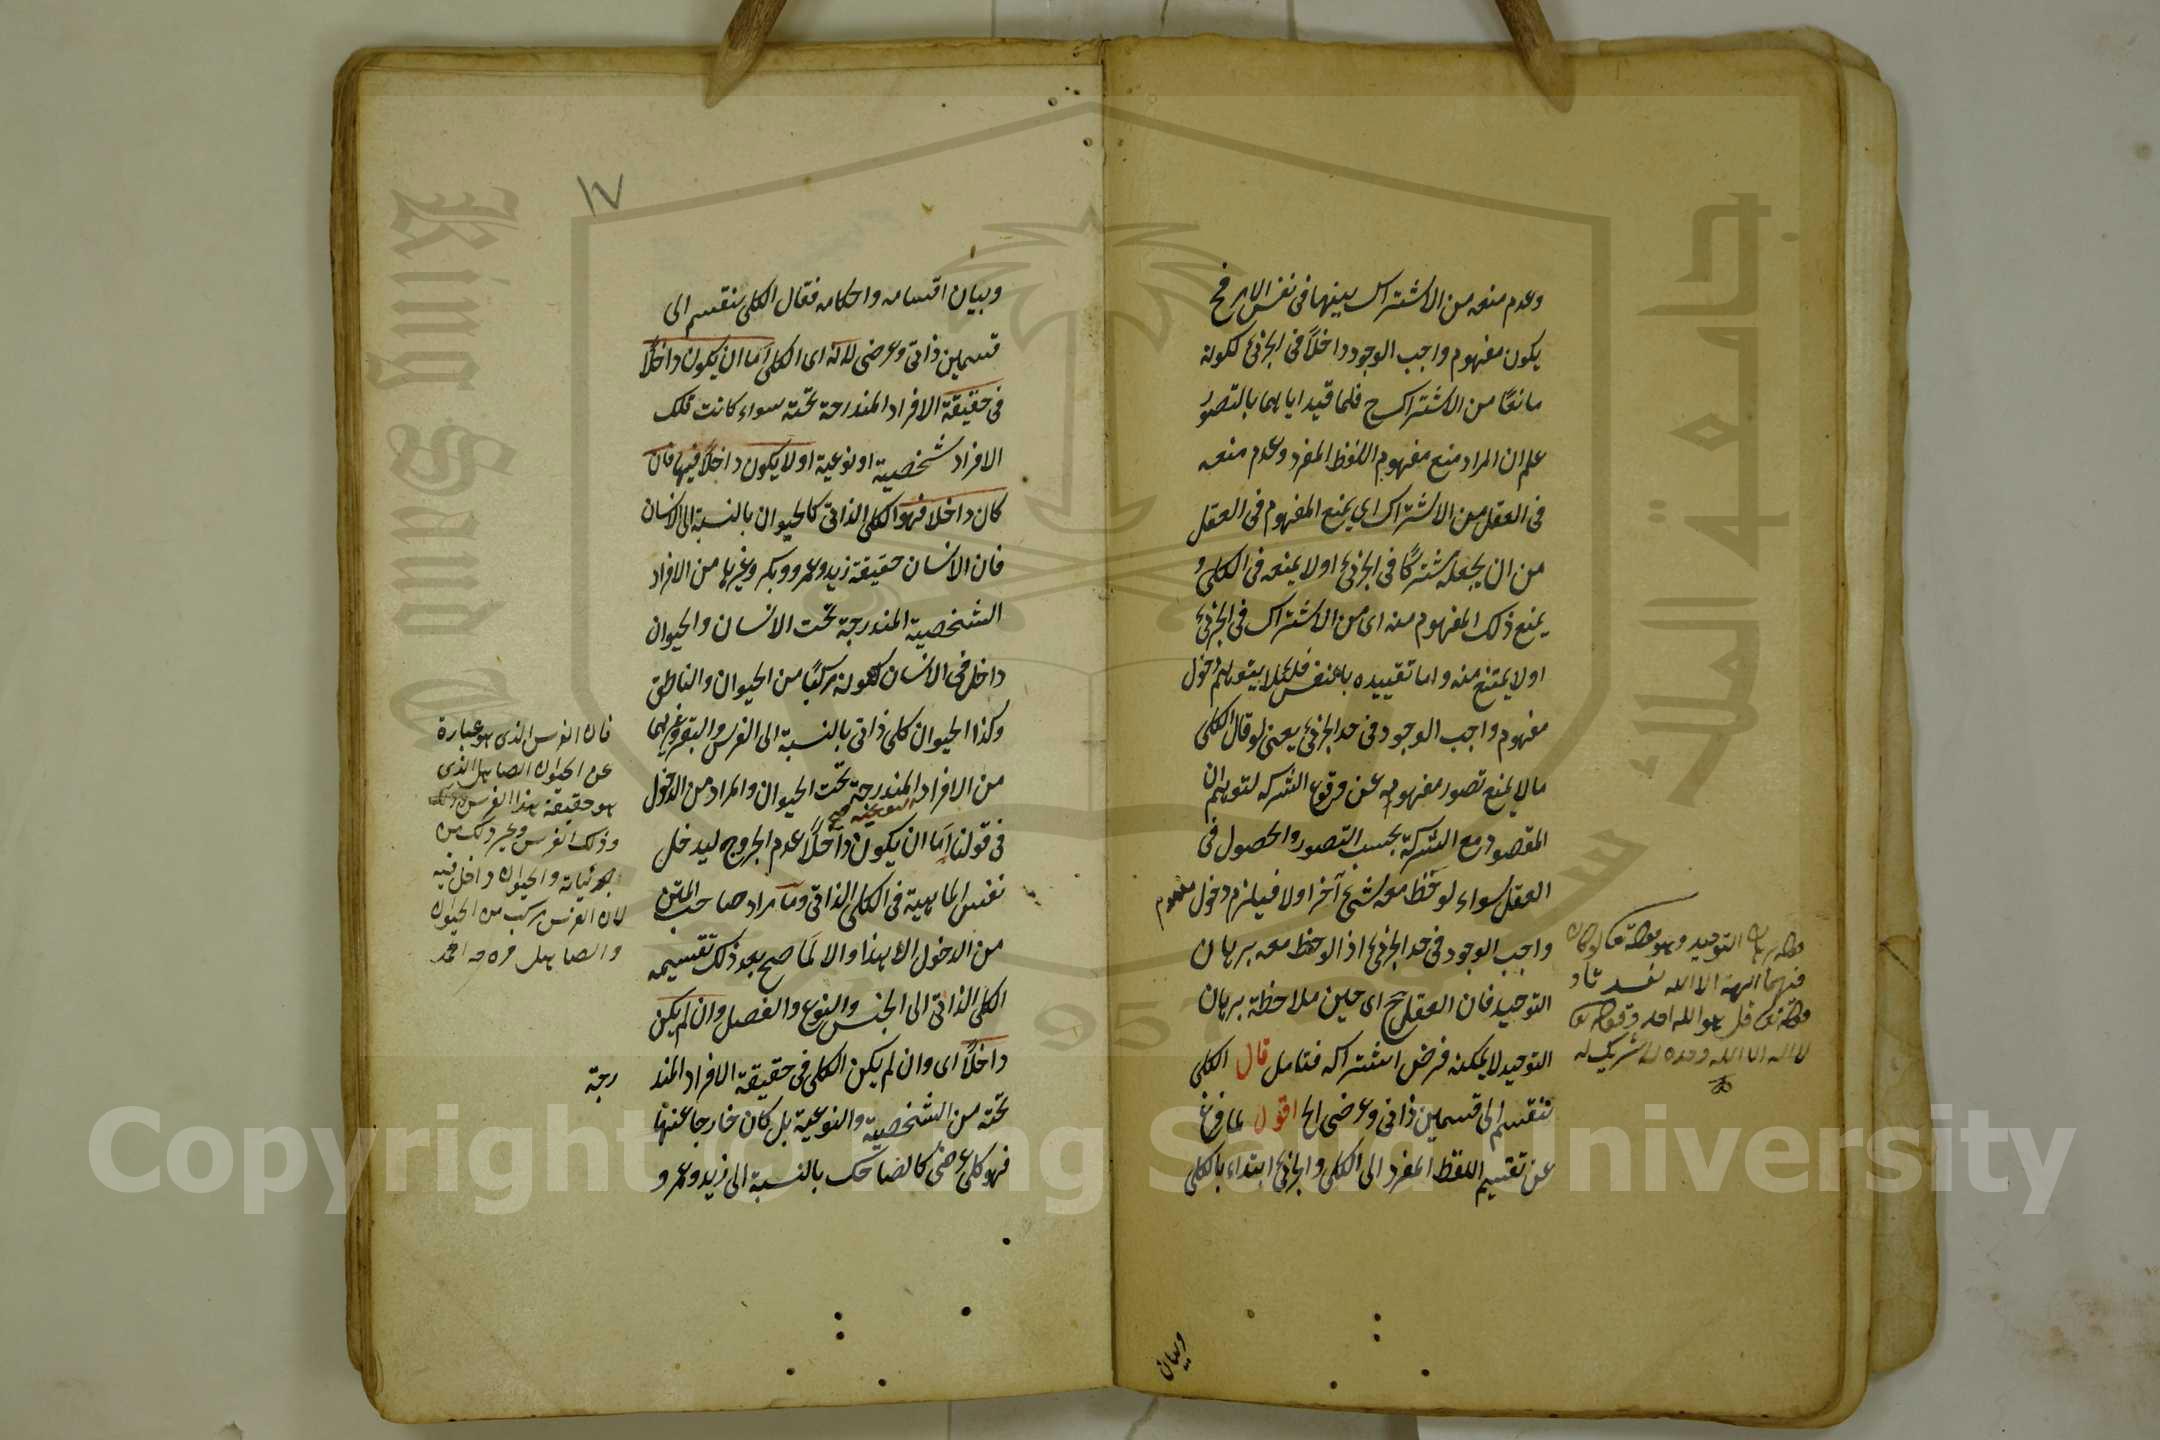 وعدم منعه من الاشتراك بينها فى نفس الامر فح
يكون مفهوم واجب الوجود داخلًا فى الجزئى ككونه
مانعًا من الاشتراك ح فلما قيد اياهما بالتصور
علم ان المراد منع مفهوم اللفظ المفرد وعدم منعه
فى العقل من الاشتراك اى يمنع المفهوم فى العقل
من ان يجعله مشتركًا فى الجزئى اولا يمنعه فى الكلى و
يمنع ذلك المفهوم منه اى من الاشتراك فى الجزئى
اولا يمتنع منه واما تقييده بالنفس فلئلا يتوهم دخول
مفهوم واجب الوجود فى حد الجزئى يعنى لو قال الكلى
مالا يمنع تصور مفهومه عن وقوع الشركه لتوهم ان
المقصود مع الشركة بحسب التصور والحصول فى
العقل سواء لوحظ معه شئ آخر اولا فيلزم دخول مفهوم
واجب الوجود فى حد الجزئى اذ الوحظ معه برهان
التوحيد فان العقل ح اى حين ملاحظة برهان
التوحيد لا يمكنه فرض اشتراكه فتامل قال الكلى
ينقسم الى قسمين ذاتى وعرضى الخ اقول لما فرغ
عن تقسيم اللفظ المفرد الى الكلى والجزئى ابتداء بالكلى
برهان التوحيد وهو قوله تعا لو كان
فيهما الهة الا الله لفسدتا و
قوله تعا قل هو الله احد وقوله تعا
لا اله الا الله وحده لا شريك له
وبيان
١٧
وبيان اقسامه واحكامه فقال الكلى ينقسم الى
قسمين ذاتى وعرضى لانه اى الكلى اما ان يكون داخلًا
فى حقيقة الافراد المندرجة تحته سواء كانت تلك
الافراد شخصية او نوعية اولا يكون داخلًا فيها فان
كان داخلا فهو الكلى الذاتى كالحيوان بالنسبة الى الانسان
فان الانسان حقيقة زيد وعمرو وبكر وغيرها من الافراد
الشخصية المندرجة تحت الانسان والحيوان
داخل فى الانسان لكونه مركبًا من الحيوان والناطق
وكذا الحيوان كلى ذاتى بالنسبة الى الفرس والبقر وغيرهما
من الافراد المندرجة تحت الحيوان والمراد من الدخول
فى قولنا اما ان يكون داخلًا عدم الخروج ليدخل
نفس الماهية فى الكلى الذاتى وما مراد صاحب المتن
من الدخول الا هذا والا لما صح بعد ذلك تقسيمه
الكلى الذاتى الى الجنس والنوع والفصل وان لم يكن
داخلًا اى وان لم يكن الكلى فى حقيقة الافراد المند
رجة
تحته من الشخصية والنوعية بل كان خارجا عنها
فهو كلى عرضى كالضاحك بالنسبة الى زيد وعمرو
فان الفرس الذى هو عبارة
عن الحيوان الصاهل الذى
هو حقيقة هذا الفرس
وذلك الفرس وغير ذلك من
جزئياته والحيوان داخل فيه
لان الفرس مركب من الحيوان
والصاهل